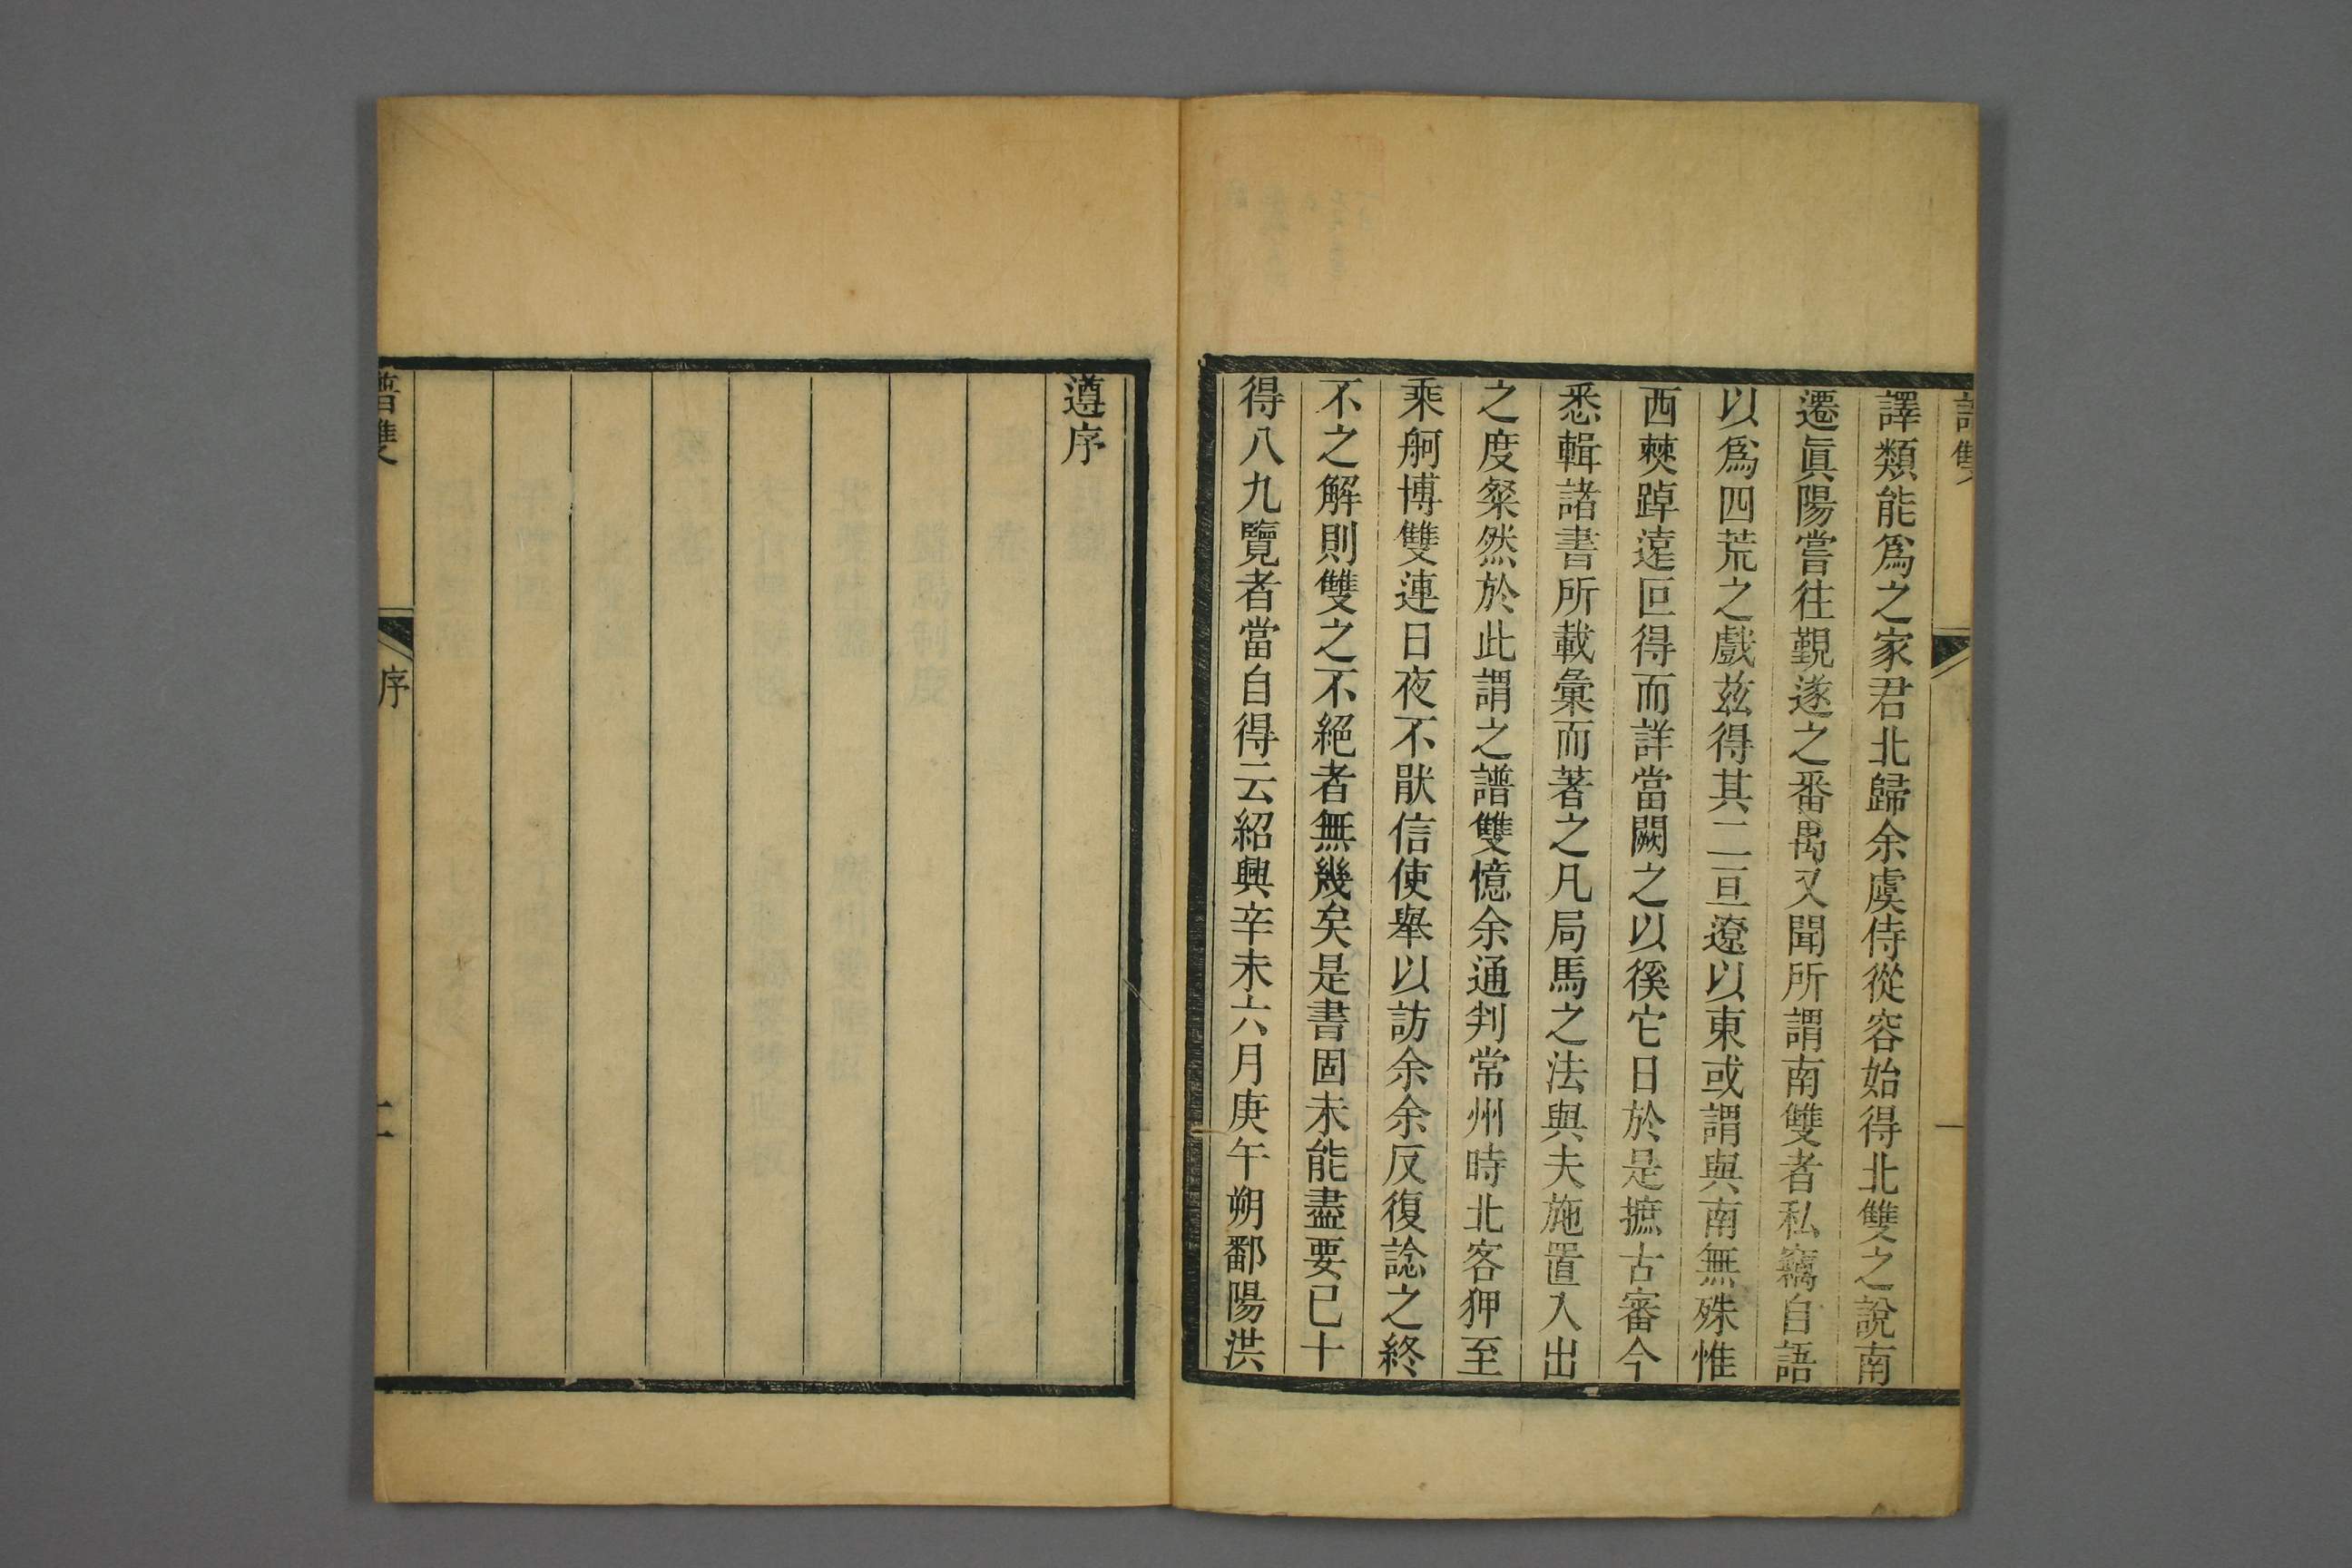 譜雙
一
譯類能爲之家君北歸余虞侍從容始得北雙之說南
遷眞陽嘗往覲遂之番禺又聞所謂南雙者私竊自語
以爲四荒之戲兹得其二亘遼以東或謂與南無殊惟
西僰踔遠叵得而詳當闕之以徯它日於是摭古審今
悉輯諸書所載彙而著之凡局馬之法與夫施置入出
之度粲然於此謂之譜雙憶余通判常州時北客狎至
乘舸博雙連日夜不猒信使舉以訪余余反復諗之終
不之解則雙之不絕者無幾矣是書固未能盡要已十
得八九覽者當自得云紹興辛未六月庚午朔鄱陽洪
遵序
譜雙
序
二